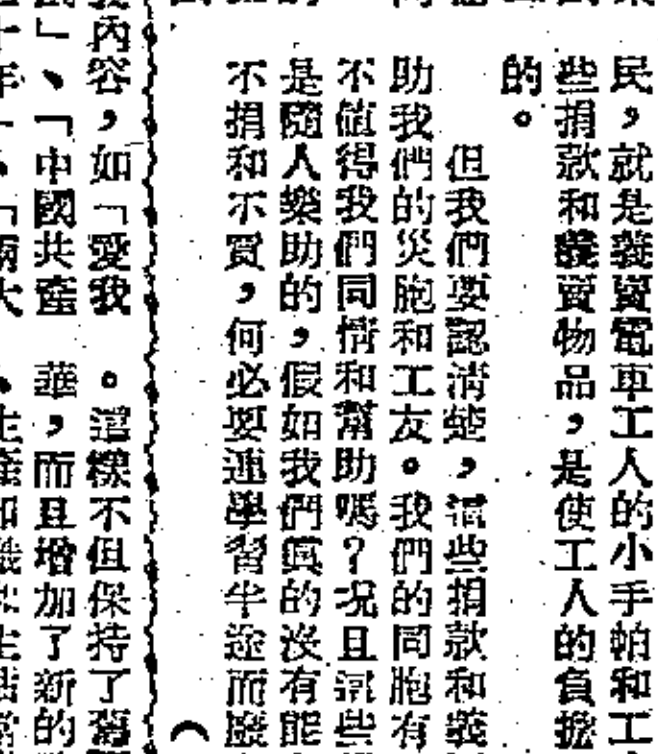 民，就是義賣電車工人的小手帕和工
些捐款和義賣物品，是使工人的負擔
的。
但我們要認清楚，這些捐款和義
助我們的災胞和工友。我們的同胞有
不值得我們同情和幫助嗎？况且這些
是隨人樂助的，假如我們眞的沒有能
不捐和不買，何必要連學習半途而廢
內容，如「愛我
「中國共產
。這樣不但保持了舊
華，而且增加了新的